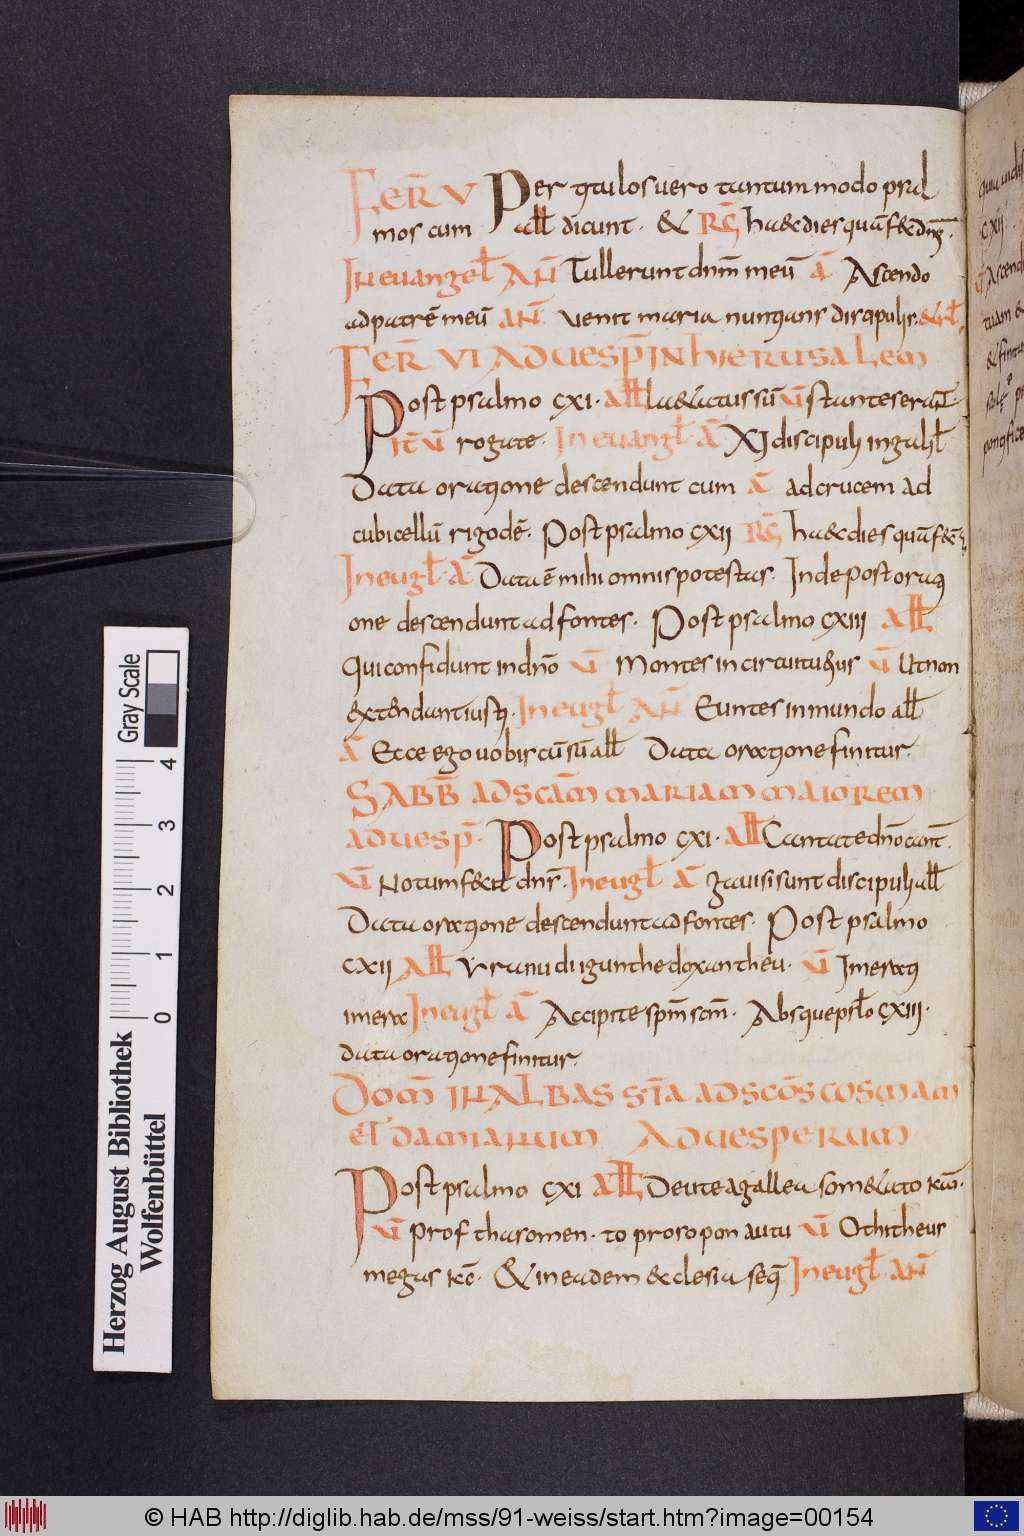 FER̄ V Per titulos uero tantummodo psal
mos cum all dicunt · & R̄G haec dies quā fec dn̄s ·
In euangel AÑ Tullerunt dnm̄ meū Ā Ascendo
ad patrē meū AÑ Venit maria nuntians discipulis · & rl
FER̄ VI AD UESP̄ IN HIERUSALEM
Post psalmo cxi · All laetatus sū V̄ stantes erant
It V̄ rogate · In euangl Ā XI discipuli in galil
Data oratione descendunt cum Ā ad crucem ad
cubicellū rigodē · Post psalmo cxii R̄G haec dies quā fec
In eugl Ā Data ē mihi omnis potestas · Inde post orati
one descendunt ad fontes · Post psalmo cxiii All
Qui confidunt in dn̄o V̄ Montes in circuitu eius V̄ Ut non
extendant iusti · In eugl AÑ Euntes in mundo all
Ā Ecce ego uobiscū sū all Data oratione finitur ·
SABB̄ AD SCĀM MARIAM MAIOREM
AD UESP̄ · Post psalmo cxi · All Cantate dn̄o cant̄ ·
V̄ Notum fecit dn̄s · In eugl Ā gauisi sunt discipuli all
Data oratione descendunt ad fontes · Post psalmo
cxii All Urani diigunthe doxan theu · V̄ Imera ti
imera In eugl Ā Accipite spm̄ scm̄ · Absque pslo cxiii ·
data oratione finitur ·
DOM̄ IN ALBAS ST̄A AD SCŌS COSMAM
ET DAMIANUM AD UESPERUM
Post psalmo cxi All Deute agallea sometato kō ·
V̄ Prof thasomen · to prosopon autu V̄ Othi theus
megas kc̄ · & in eadem ecclesia seq̄ In eugl · AÑ
cxii
Ascend
Herzog August Bibliothek
Wolfenbüttel
Gray Scale
0 1 2 3 4
© HAB http://diglib.hab.de/mss/91-weiss/start.htm?image=00154